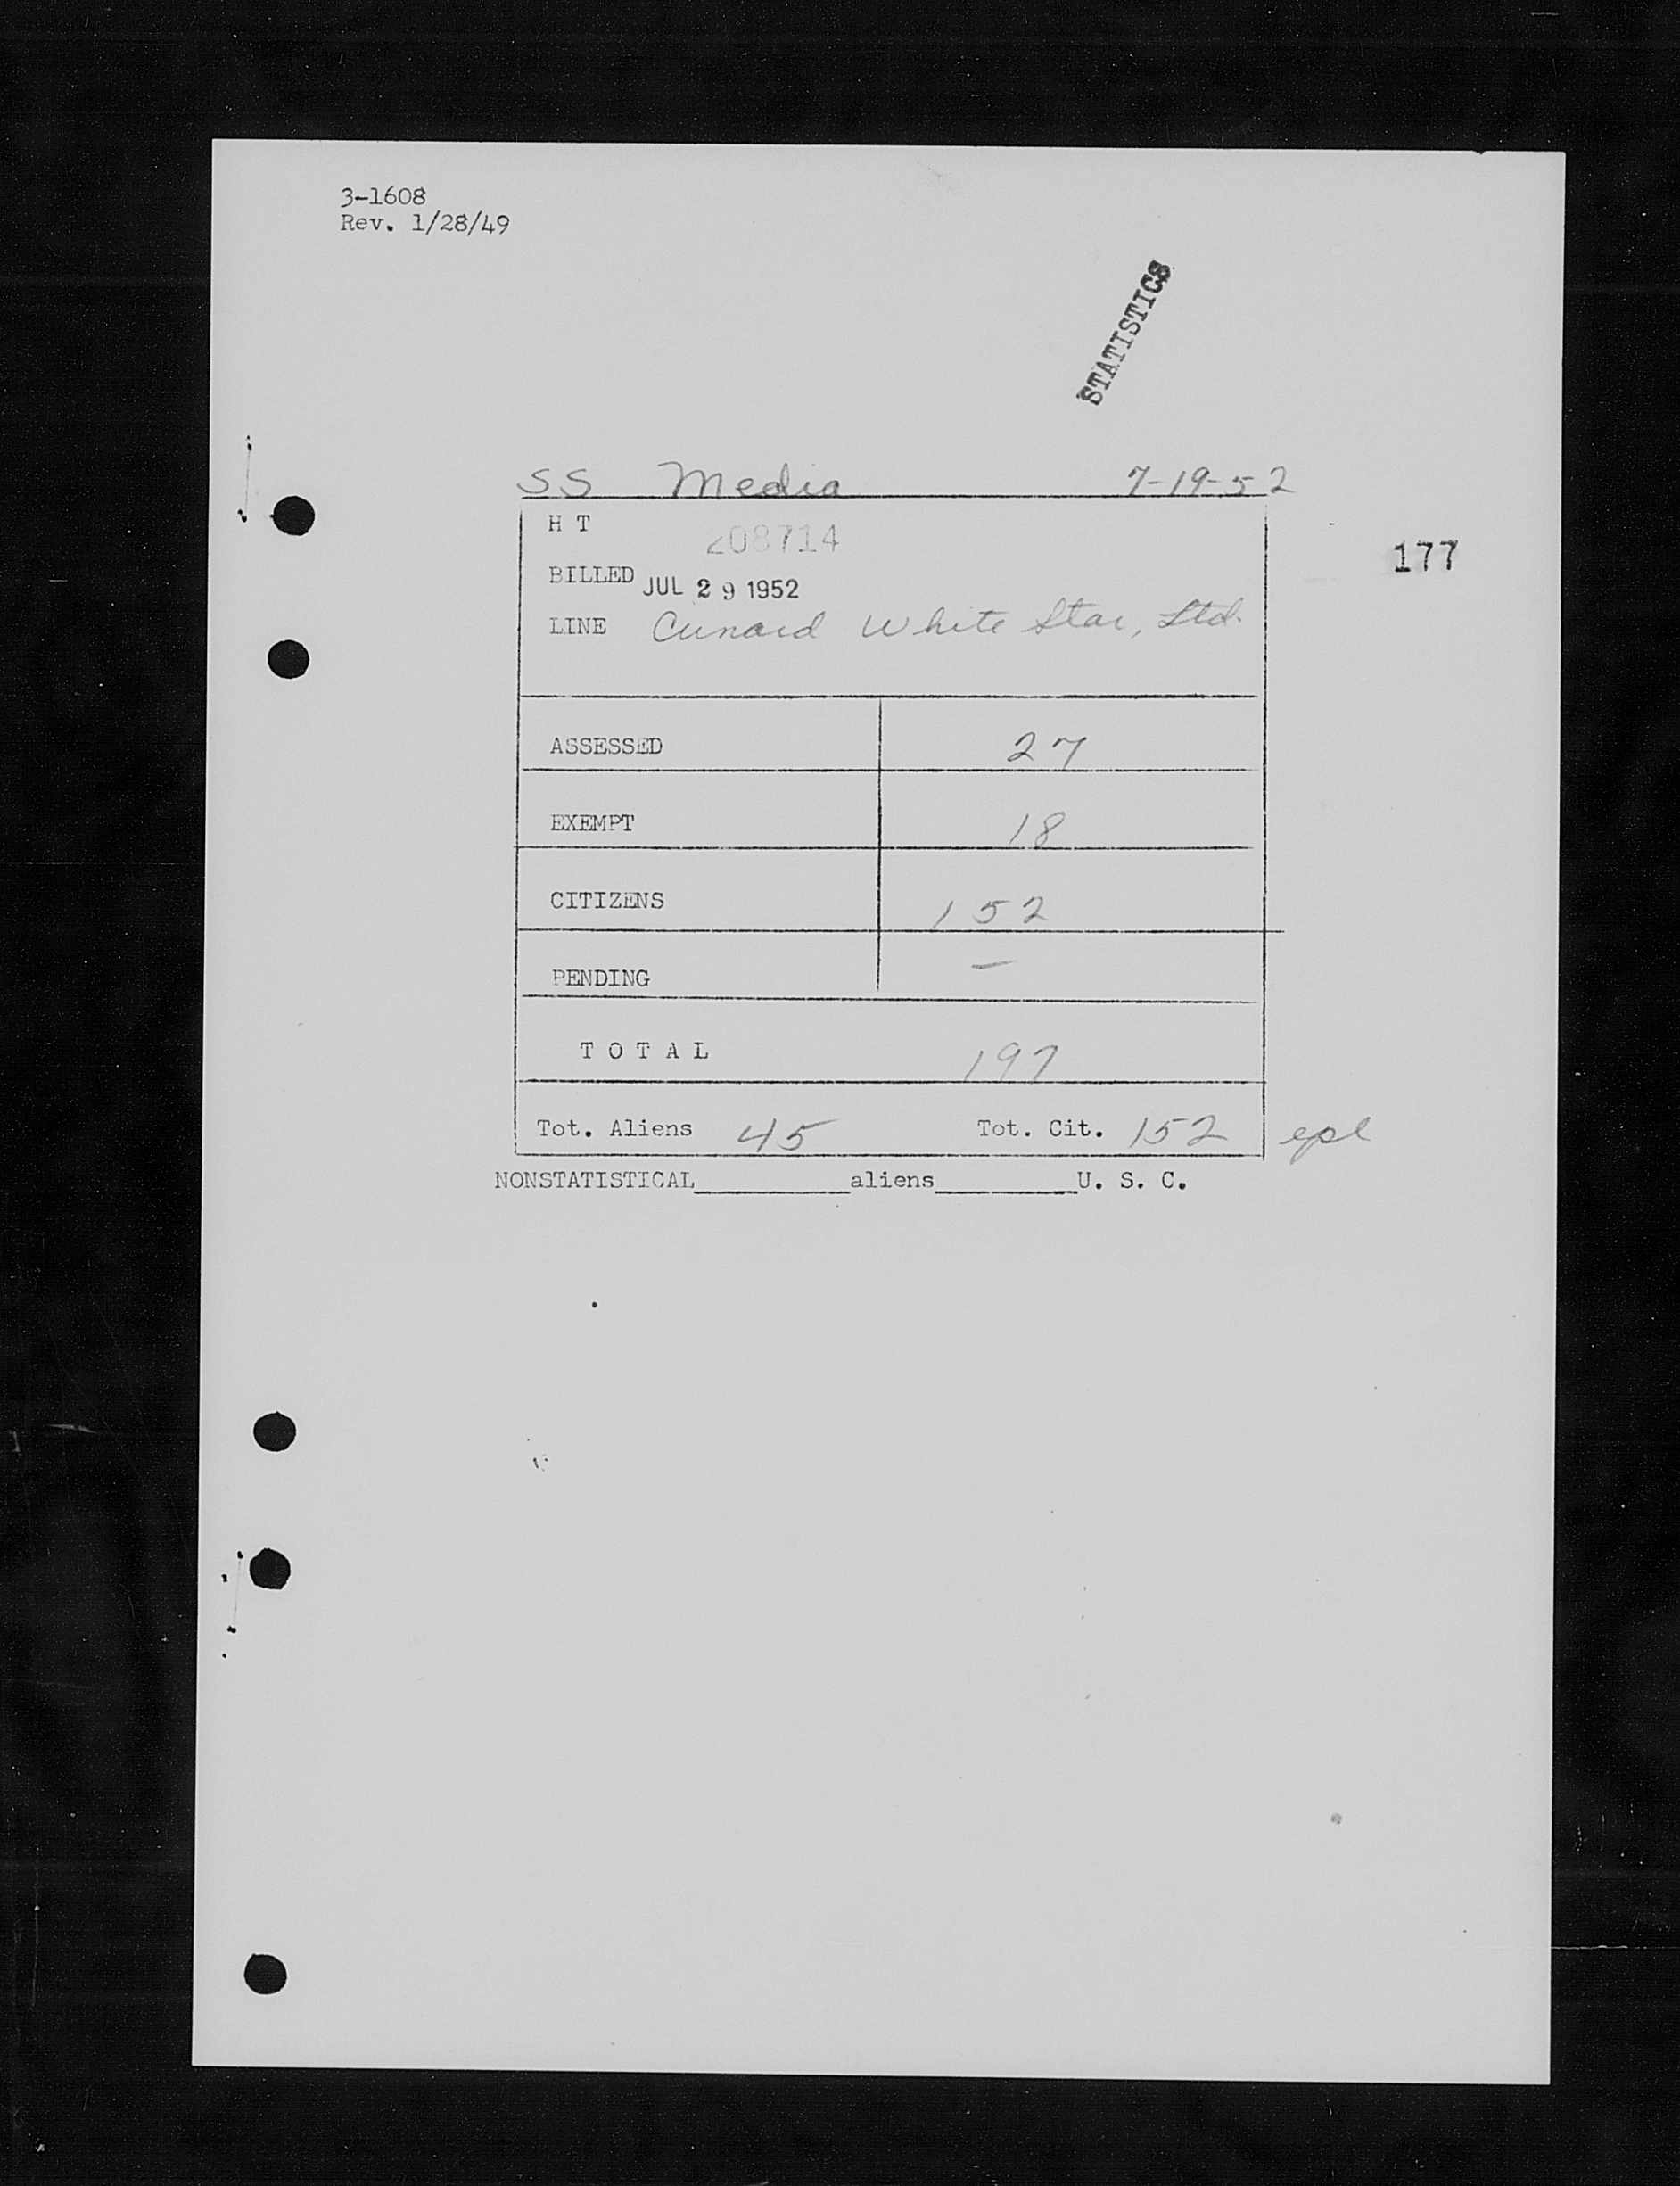 3-1608
Rev. 1/28/49
STATISTICS
SS Media 7-19-52
H T 208714
177
BILLED JUL 29 1952
LINE Cunard White Star, Ltd.
ASSESSED 27
EXEMPT 18
CITIZENS 152
PENDING –
T O T A L 197
Tot. Aliens 45 Tot. Cit. 152 epl
NONSTATISTICAL__________aliens__________U. S. C.